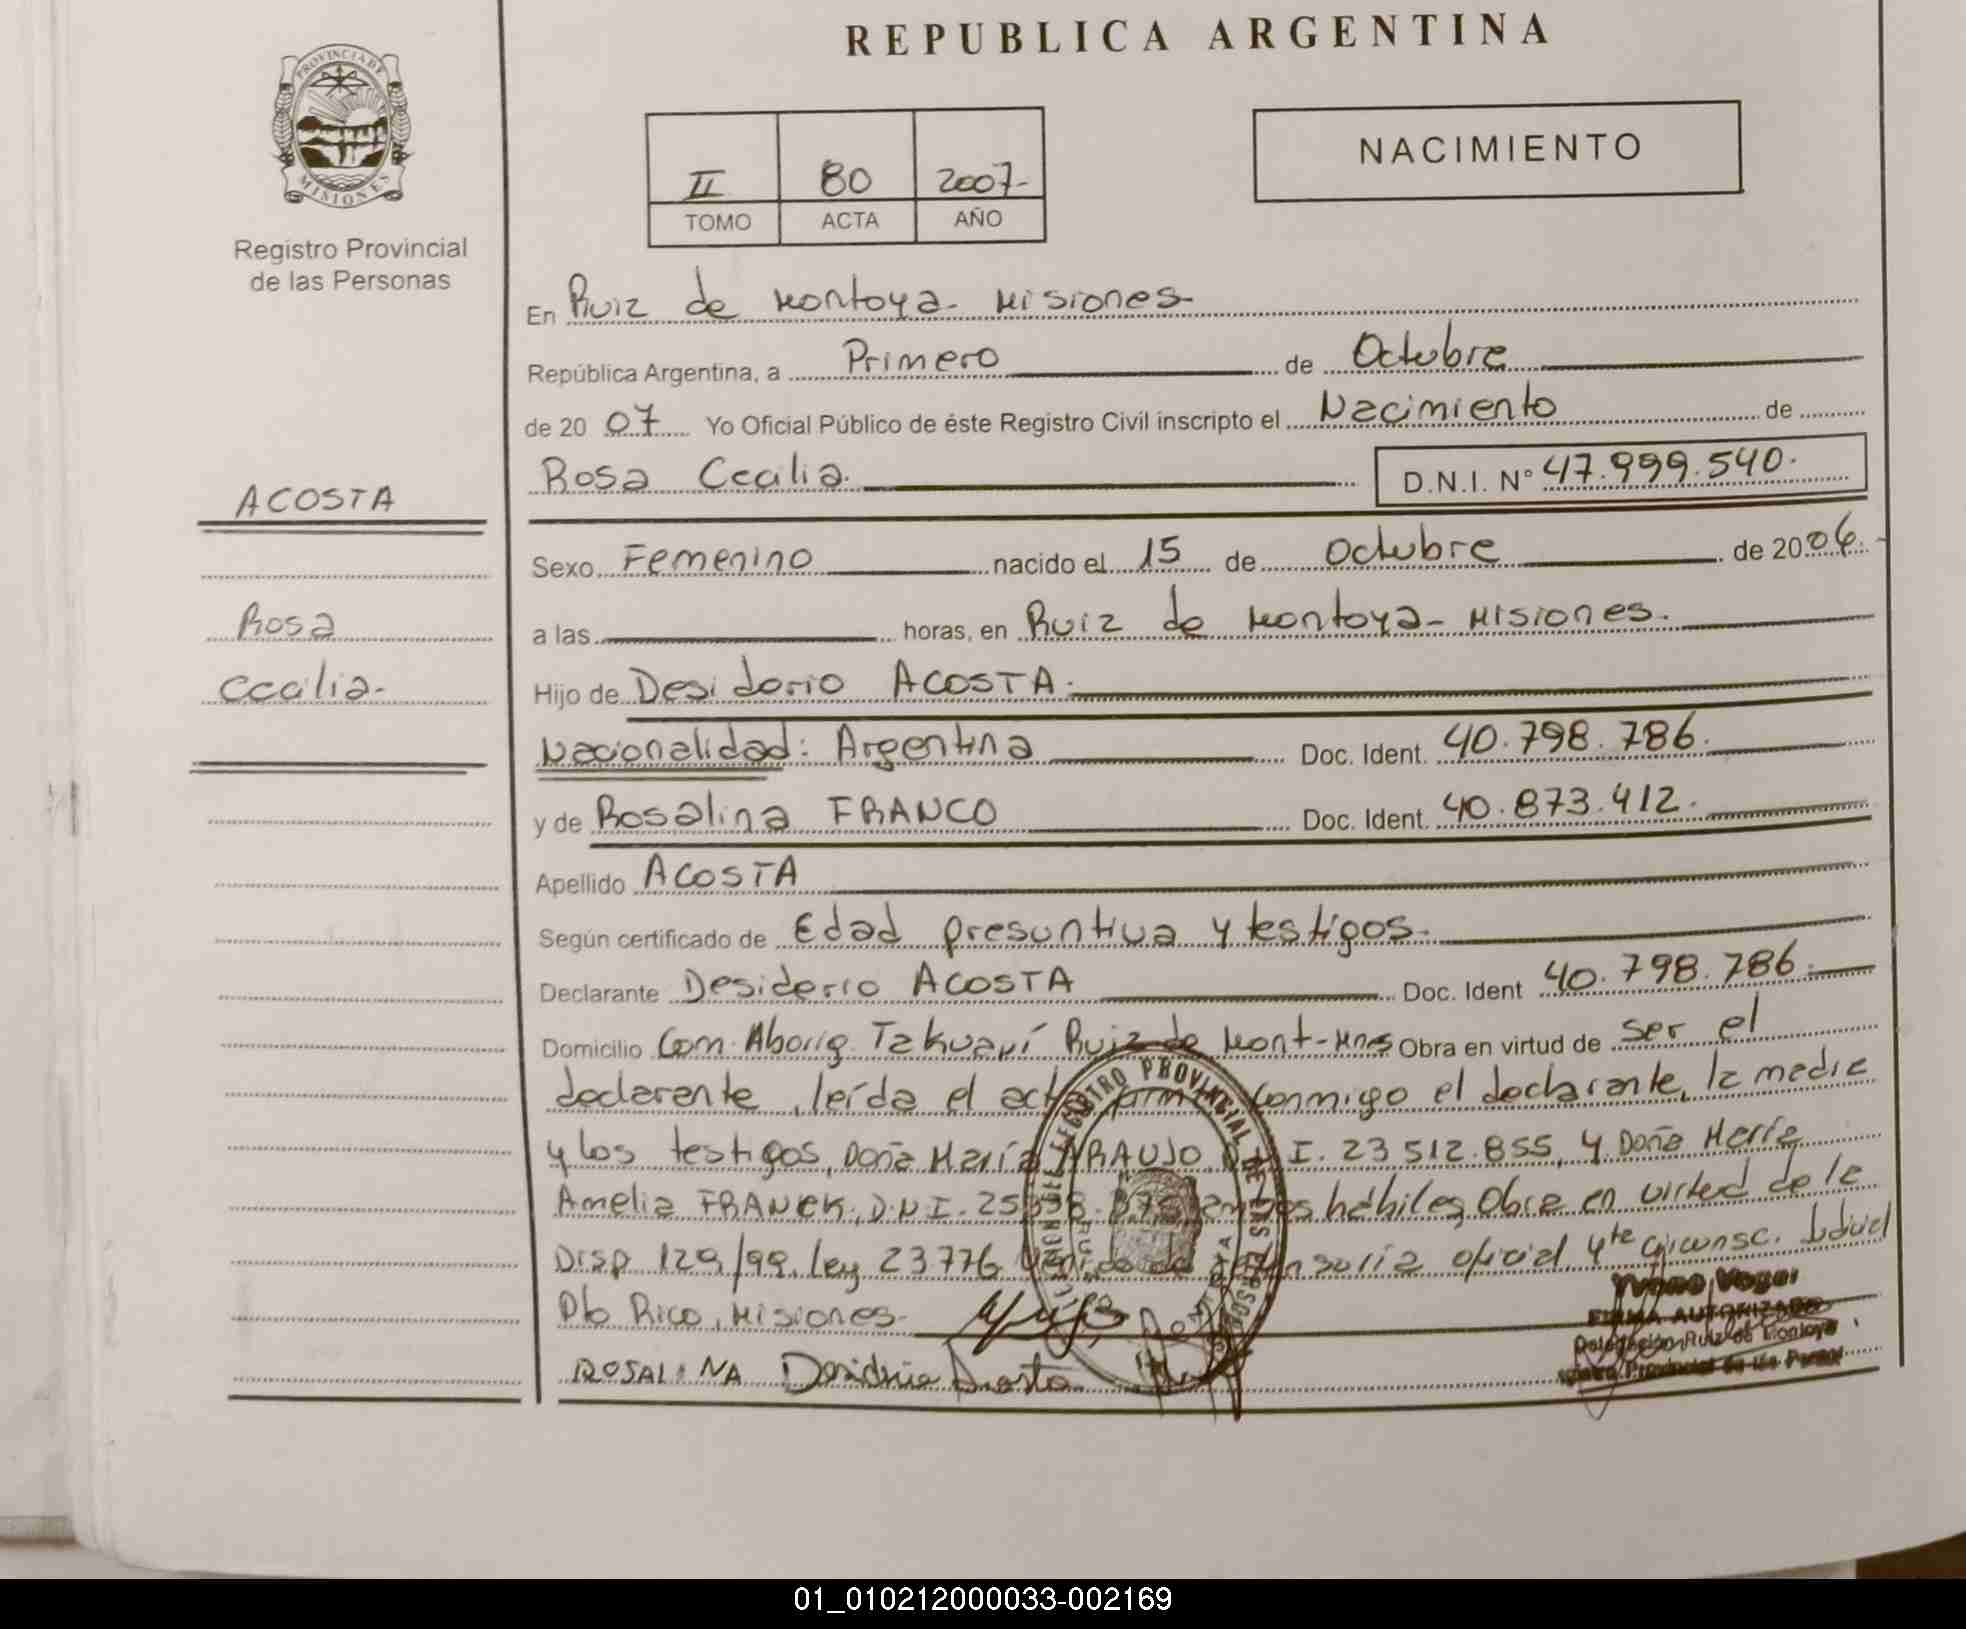 REPUBLICA ARGENTINA
PROVINCIA DE
MISIONES
Registro Provincial
de las Personas
NACIMIENTO
II 80 2007-
TOMO ACTA AÑO
En Ruiz de Montoya- Misiones-
República Argentina, a Primero de Octubre
de 2007 Yo Oficial Público de éste Registro Civil inscripto el Nacimiento de
Rosa Cecilia. D.N.I. N° 47.999.540.
ACOSTA
Rosa
Cecilia-
Sexo Femenino nacido el 15 de Octubre de 2006.
a las horas, en Ruiz de Montoya- Misiones.
Hijo de Desiderio ACOSTA.
Nacionalidad: Argentina Doc. Ident. 40.798.786.
y de Rosalina FRANCO Doc. Ident. 40.873.412.
Apellido ACOSTA
Según certificado de Edad presuntiva y testigos.
Declarante Desiderio ACOSTA Doc. Ident 40.798.786.
Domicilio Com. Aborig. Takuapí Ruiz de Mont-Mnes Obra en virtud de ser el
declarante, leída el acta conmigo el declarante, la madre
y los testigos, Doña María ARAUJO, D.N.I. 23512.855, y Doña María
Amelia FRANCK, D.N.I. hábiles, Obra en virtud de la
Disp 129/99, Ley 23776 oficial 4te Circunsc. Judicial
Pto Rico, Misiones-
ROSALINA Desiderio Acosta
REGISTRO PROVINCIAL DE LAS PERSONAS
FIRMA AUTORIZADA
Delegación Ruiz de Montoya
Provincial de las Person
01_010212000033-002169